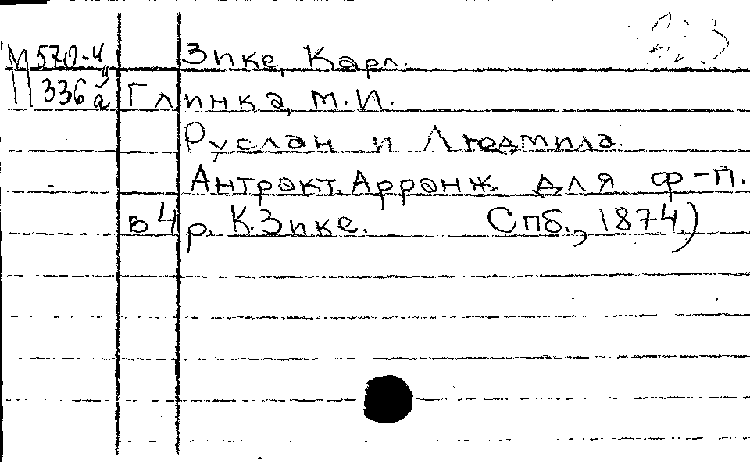 М 570-4 Зике, Карл.
П 336 а Глинка, М.И.
Руслан и Людмила.
Антракт. Арранж для ф-п.
в 4 р. К. Зике. Спб., 1874)